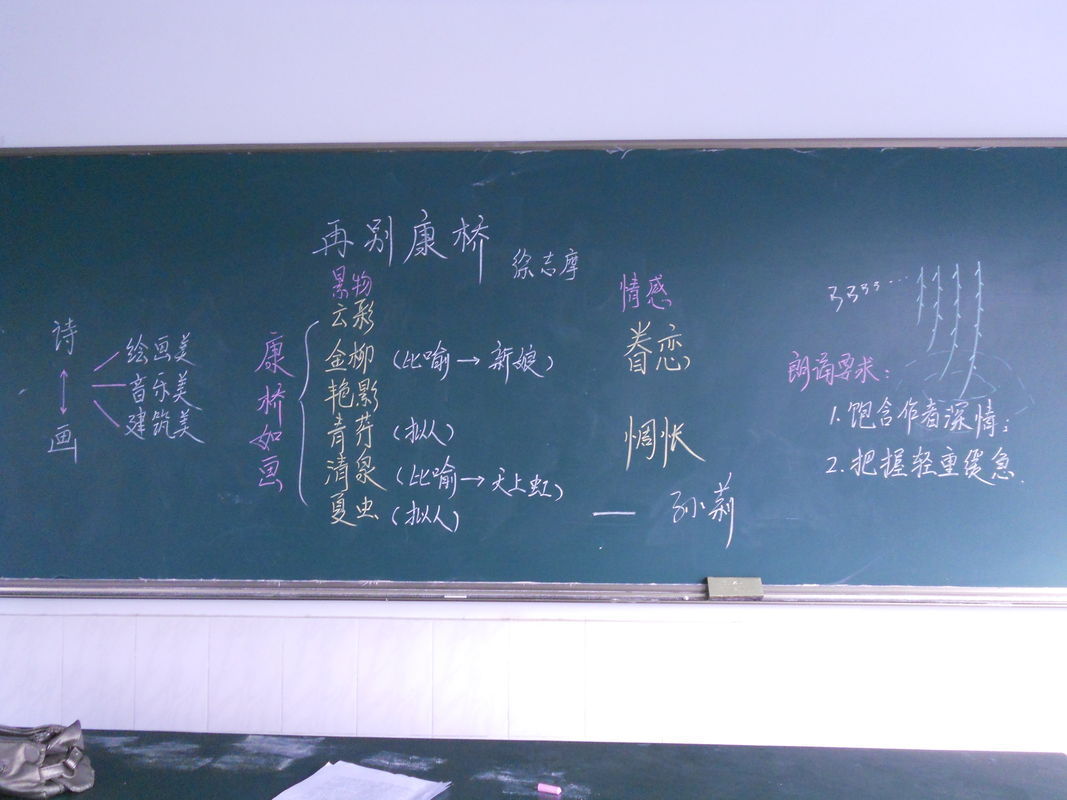 再别康桥
徐志摩
诗
画
绘画美
音乐美
建筑美
康桥如画
景物
云彩
金柳(比喻→新娘)
艳影
青荇(拟人)
清泉(比喻→天上虹)
夏虫(拟人)
情感
眷恋
惆怅
— 孙莉
朗诵要求:
1.饱含作者深情;
2.把握轻重缓急.